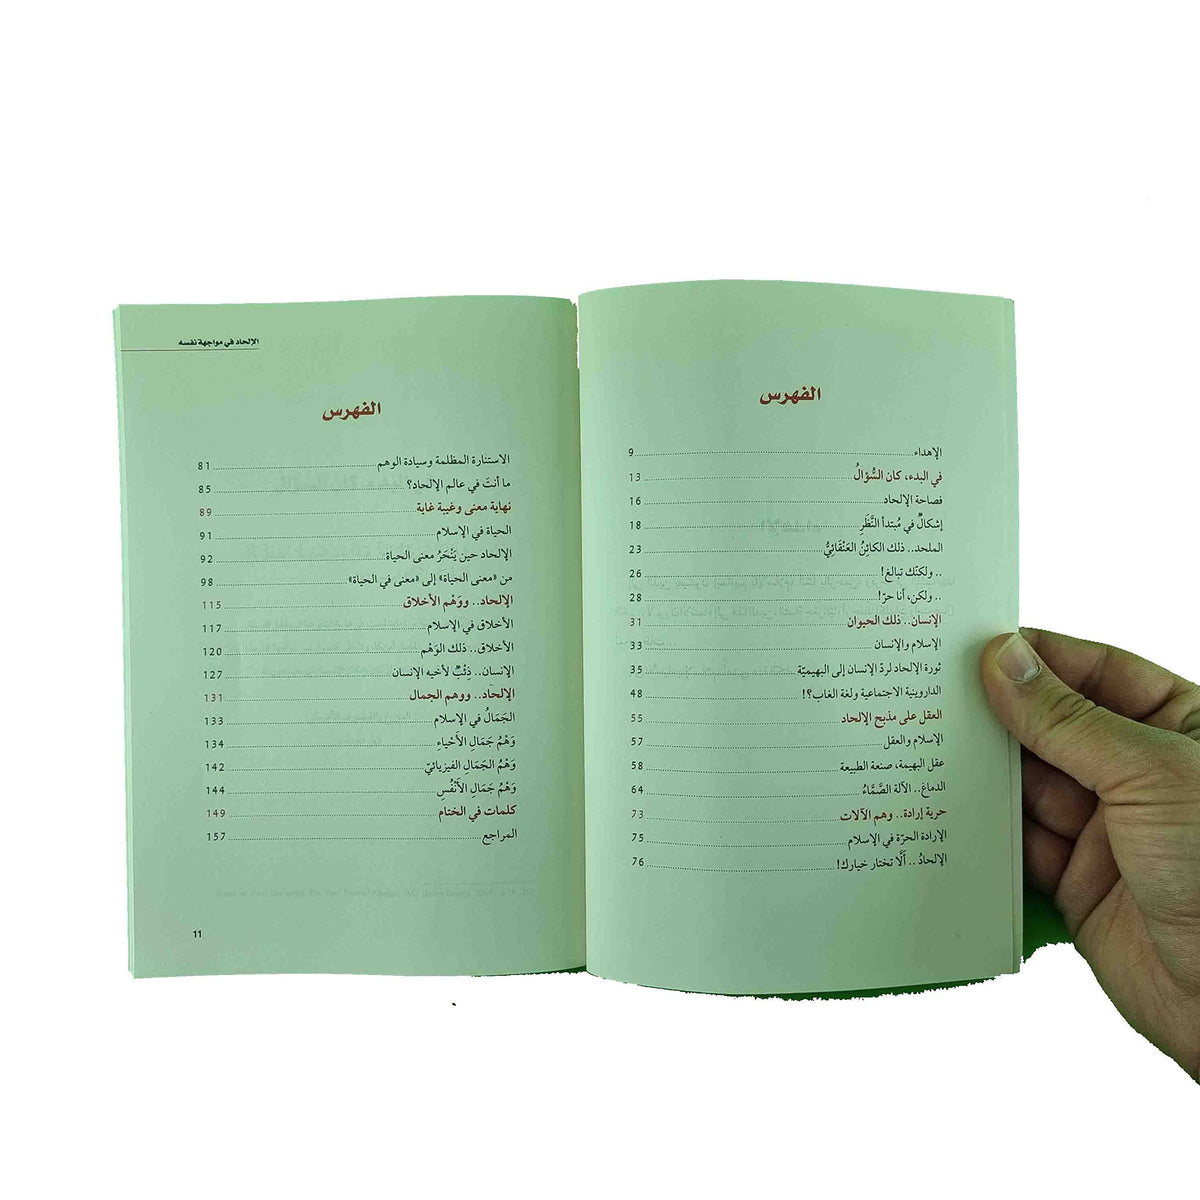 الفهرس
الإهداء 9
في البدء، كان السُّؤالُ 13
فصاحة الإلحاد 16
إشكالٌ في مُبتدأ النَّظَرِ 18
الملحد.. ذلك الكائِنُ العَنْقَائِيُّ 23
.. ولكنّك تبالغ! 26
.. ولكن، أنا حرّ! 28
الإنسان.. ذلك الحيوان 31
الإسلام والإنسان 33
ثورة الإلحاد لردّ الإنسان إلى البهيميّة 35
الداروينية الاجتماعية ولغة الغاب؟! 48
العقل على مذبح الإلحاد 55
الإسلام والعقل 57
عقل البهيمة، صنعة الطبيعة 58
الدماغ.. الآلة الصَّمَّاءُ 64
حرية إرادة.. وهم الآلات 73
الإرادة الحرّة في الإسلام 75
الإلحادُ.. ألَّا تختار خيارك! 76
الإلحاد في مواجهة نفسه
الفهرس
الاستنارة المظلمة وسيادة الوهم 81
ما أنتَ في عالم الإلحاد؟ 85
نهاية معنى وغيبة غاية 89
الحياة في الإسلام 91
الإلحاد حين يَنْحَرُ معنى الحياة 92
من «معنى الحياة» إلى «معنى في الحياة» 98
الإلحاد.. ووَهْم الأخلاق 115
الأخلاق في الإسلام 117
الأخلاق.. ذلك الوَهْم 120
الإنسان.. ذِئْبٌ لأخيه الإنسان 127
الإلحاد.. ووهم الجمال 131
الجَمَالُ في الإسلام 133
وَهْمُ جَمَالِ الأَحْياءِ 134
وَهْمُ الجَمَالِ الفيزيائيّ 142
وَهْمُ جَمَالِ الأَنْفُسِ 144
كلمات في الختام 149
المراجع 157
11